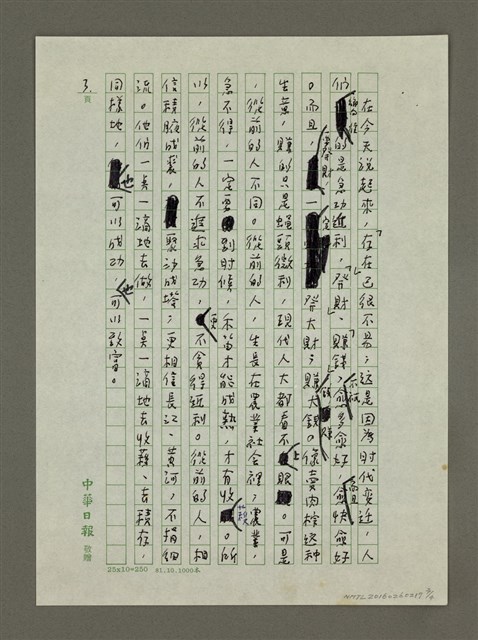 在今天說起來，「存在」已很不易；這是因為时代变迁，人
們嚮往的是急功近利，「發財」、「賺錢」，不祇愈多愈好，而且愈快愈好
。而且，要發財，一定發大財；賺錢，要賺大錢。像賣肉粽这种
生意，賺的只是蠅頭微利，現代人大都看不上眼。可是
，從前的人不同。從前的人，生長在農業社会裡，農業，
急不得，一定要到时候，禾苗才能成熟，才有收穫。所
以，從前的人不追求急功，更不貪得近利。從前的人，相
信積腋成裘，聚沙成塔；更相信長江、黄河，不捐細
流。他们一点一滴地去做，一点一滴地去收穫、去積存，
同樣地，他可以成功，他可以致富。
3.頁
中華日報 敬贈
25x10=250 81.10.1000本
NMTL20160260217 3/4